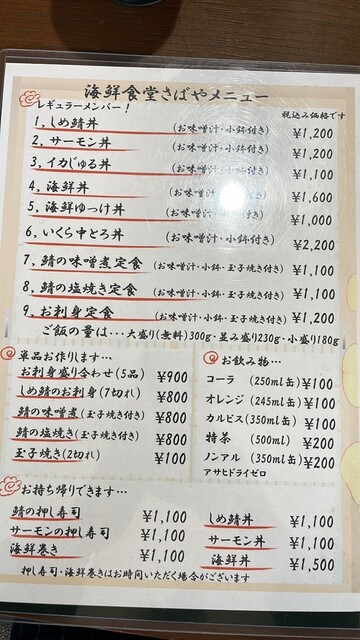 海鮮食堂さばやメニュー
レギュラーメンバー! 税込み価格です
1, しめ鯖丼 (お味噌汁・小鉢付き) ¥1,200
2, サーモン丼 (お味噌汁・小鉢付き) ¥1,200
3, イカじゅる丼 (お味噌汁・小鉢付き) ¥1,100
4, 海鮮丼 (お味噌汁・小鉢付き) ¥1,600
5, 海鮮ゆっけ丼 (お味噌汁・小鉢付き) ¥1,000
6, いくら中とろ丼 (お味噌汁・小鉢付き) ¥2,200
7, 鯖の味噌煮定食 (お味噌汁・小鉢・玉子焼き付き) ¥1,100
8, 鯖の塩焼き定食 (お味噌汁・小鉢・玉子焼き付き) ¥1,100
9, お刺身定食 (お味噌汁・小鉢・玉子焼き付き) ¥1,200
ご飯の量は・・・大盛り(無料)300g・並み盛り230g・小盛り180g
単品お作りします…
お刺身盛り合わせ(5品) ¥900
しめ鯖のお刺身(7切れ) ¥800
鯖の味噌煮(玉子焼き付き) ¥800
鯖の塩焼き(玉子焼き付き) ¥800
玉子焼き(2切れ) ¥100
お飲み物…
コーラ (250ml缶) ¥100
オレンジ (245ml缶) ¥100
カルピス(350ml缶) ¥100
特茶 (500ml) ¥200
ノンアル (350ml缶) ¥200
アサヒドライゼロ
お持ち帰りできます…
鯖の押し寿司 ¥1,100
サーモンの押し寿司 ¥1,100
海鮮巻き ¥1,100
しめ鯖丼 ¥1,100
サーモン丼 ¥1,100
海鮮丼 ¥1,500
押し寿司・海鮮巻きはお時間いただく場合がございます